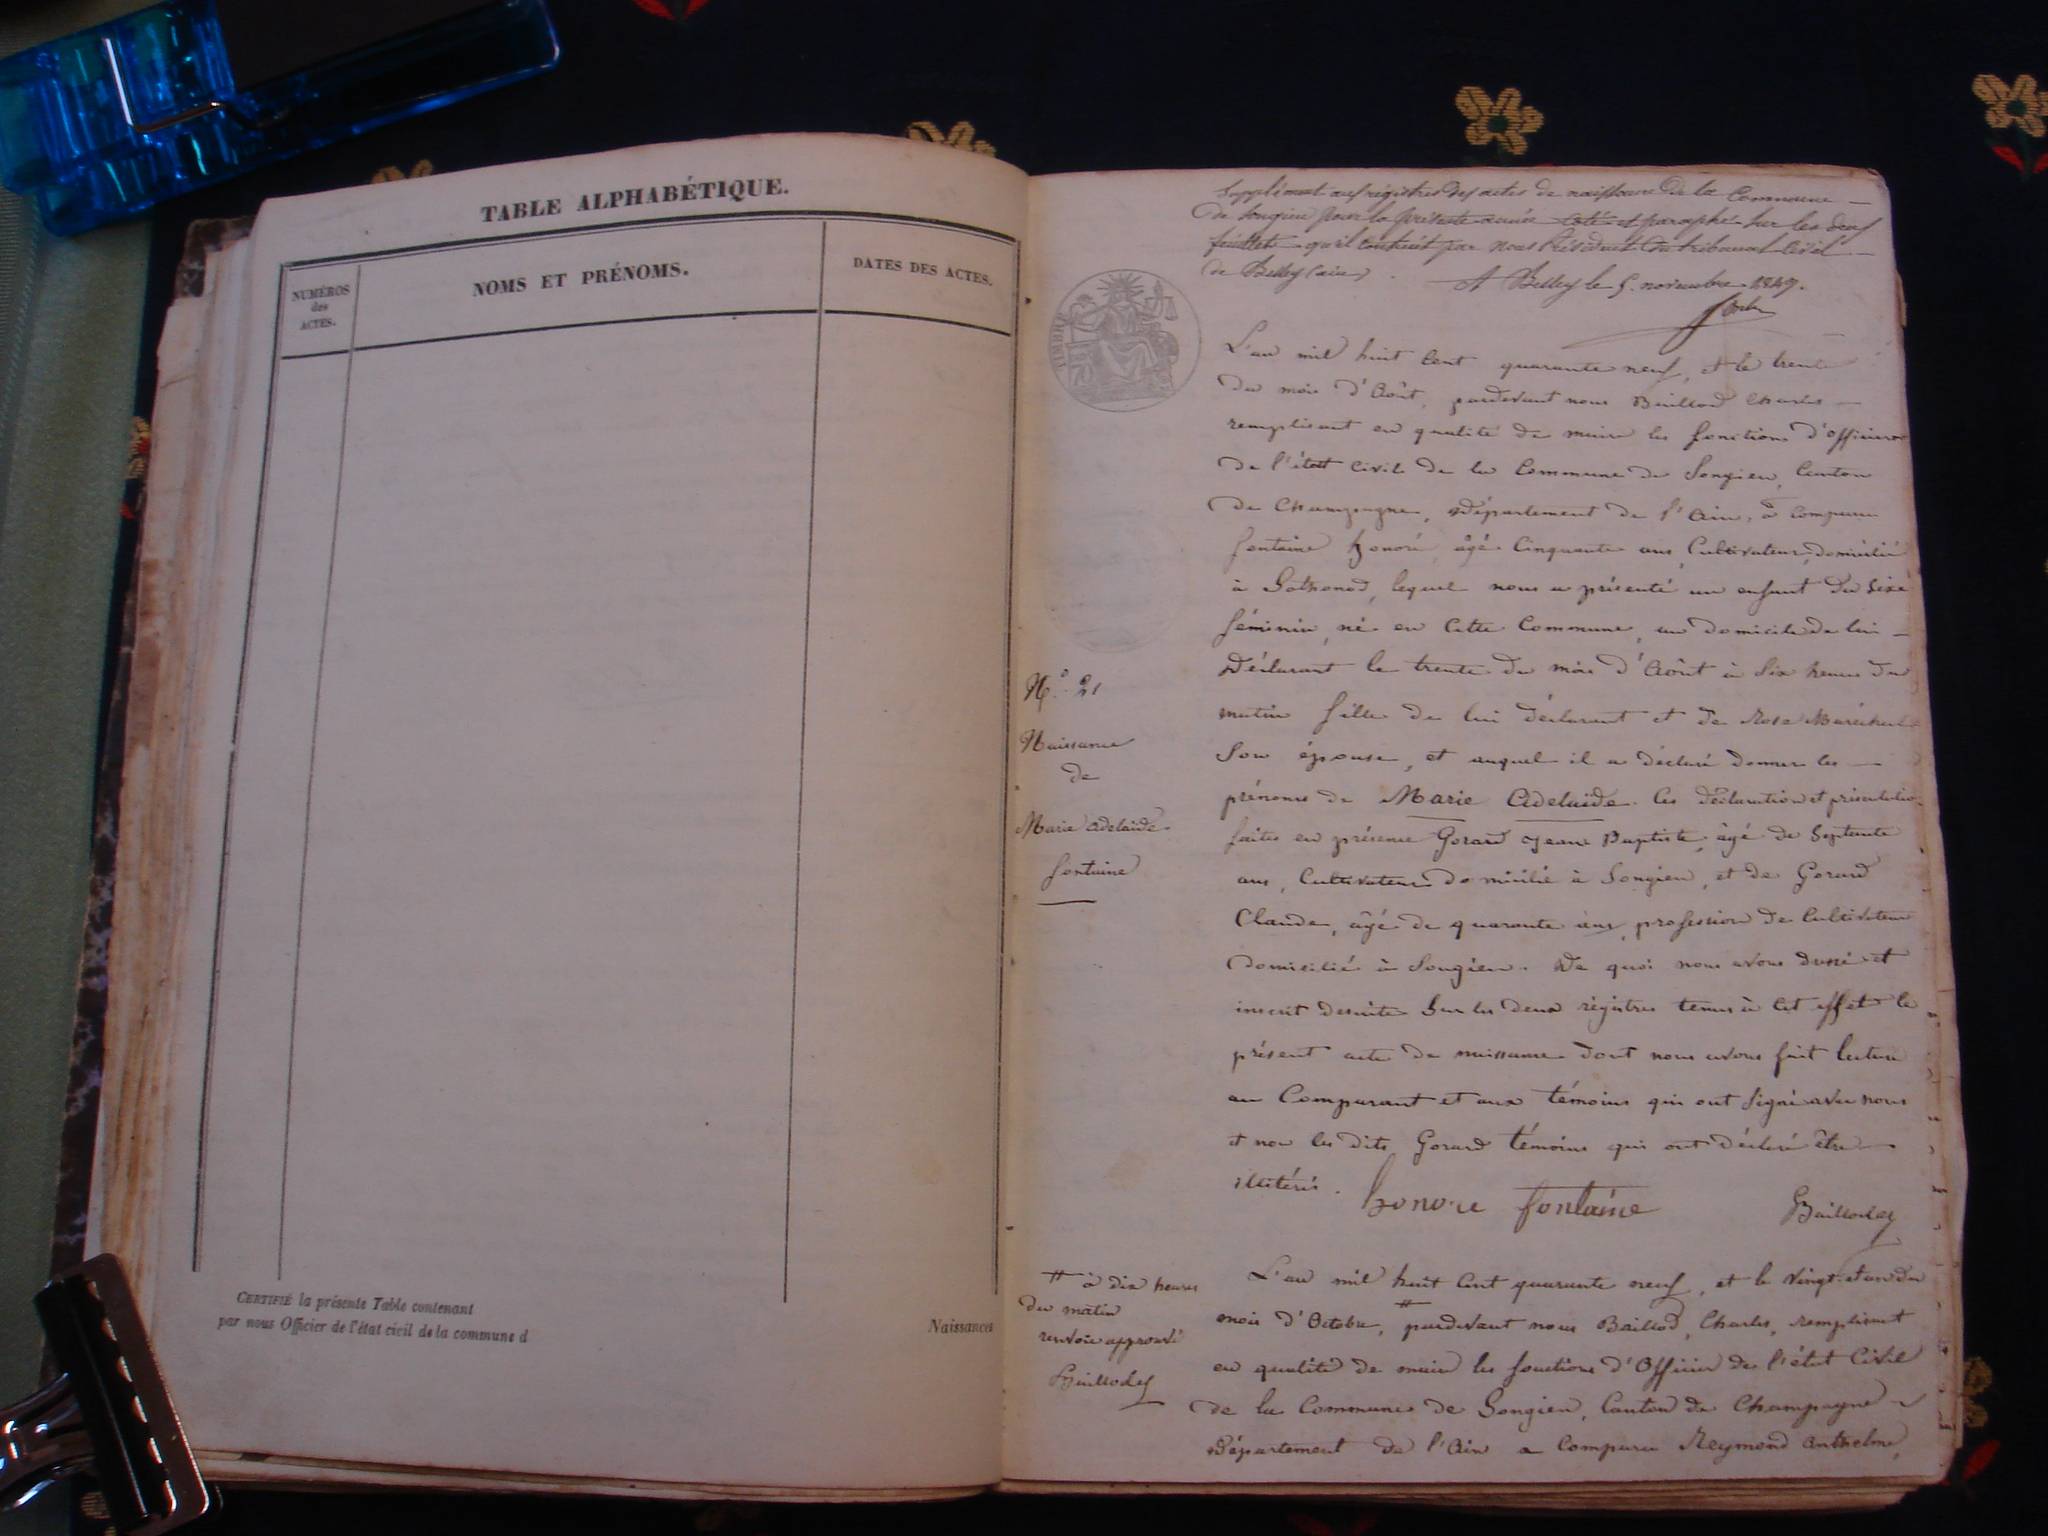 TABLE ALPHABÉTIQUE.
NUMÉROS
des
ACTES.
NOMS ET PRÉNOMS.
DATES DES ACTES.
CERTIFIÉ la présente Table contenant
par nous Officier de l'état civil de la commune d
Naissances
Supplément aux régistres des actes de naissance de la Commune
de Songieu pour la présente année coté et paraphé sur les deux
feuillets qu'il contient par nous Président du tribunal Civil
de Belley (ain)
A Belley le 5 novembre 1849.
TIMBRE
L'an mil huit cent quarante neuf, et le trente
du mois d'Août, pardevant nous Baillod Charles
remplissant en qualité de maire les fonctions d'officier
de l'état civil de la Commune de Songieu, Canton
de Champagne, Département de l'Ain, à comparu
fontaine honoré, âgé Cinquante ans, Cultivateur, domicilié
à Sothonod, lequel nous a présenté un enfant du sexe
féminin, né en cette Commune, au domicile de lui
Déclarant le trente du mois d'Août à six heures du
matin fille de lui déclarant et de Rose Maréchal
Son épouse, et auquel il a déclaré donner les
prénoms de Marie Adelaïde. Ces déclaration et présentation
faites en présence Gorard Jean Baptiste, âgé de Septante
ans, Cultivateur domicilié à Songieu, et de Gorard
Claude, âgé de quarante ans, profession de Cultivateur
domicilié à Songieu. De quoi nous avons dressé et
inscrit desuite Sur les deux régistres tenus à cet effet le
présent acte de naissance dont nous avons fait lecture
au Comparant et aux témoins qui ont signé avec nous
et non les dits Gorard témoins qui ont déclaré être
illitérés.
honore fontaine
Baillod
N.º 21
Naissance
de
Marie adelaïde
fontaine
# à dix heures
du matin
renvoi approuvé
Baillod
L'an mil huit cent quarante neuf, et le vingt et un du
mois d'Octobre, # pardevant nous Baillod, Charles, remplissant
en qualité de maire les fonctions d'Officier de l'état Civil
de la Commune de Songieu, Canton de Champagne
Département de l'Ain a Comparu Reymond Anthelme,